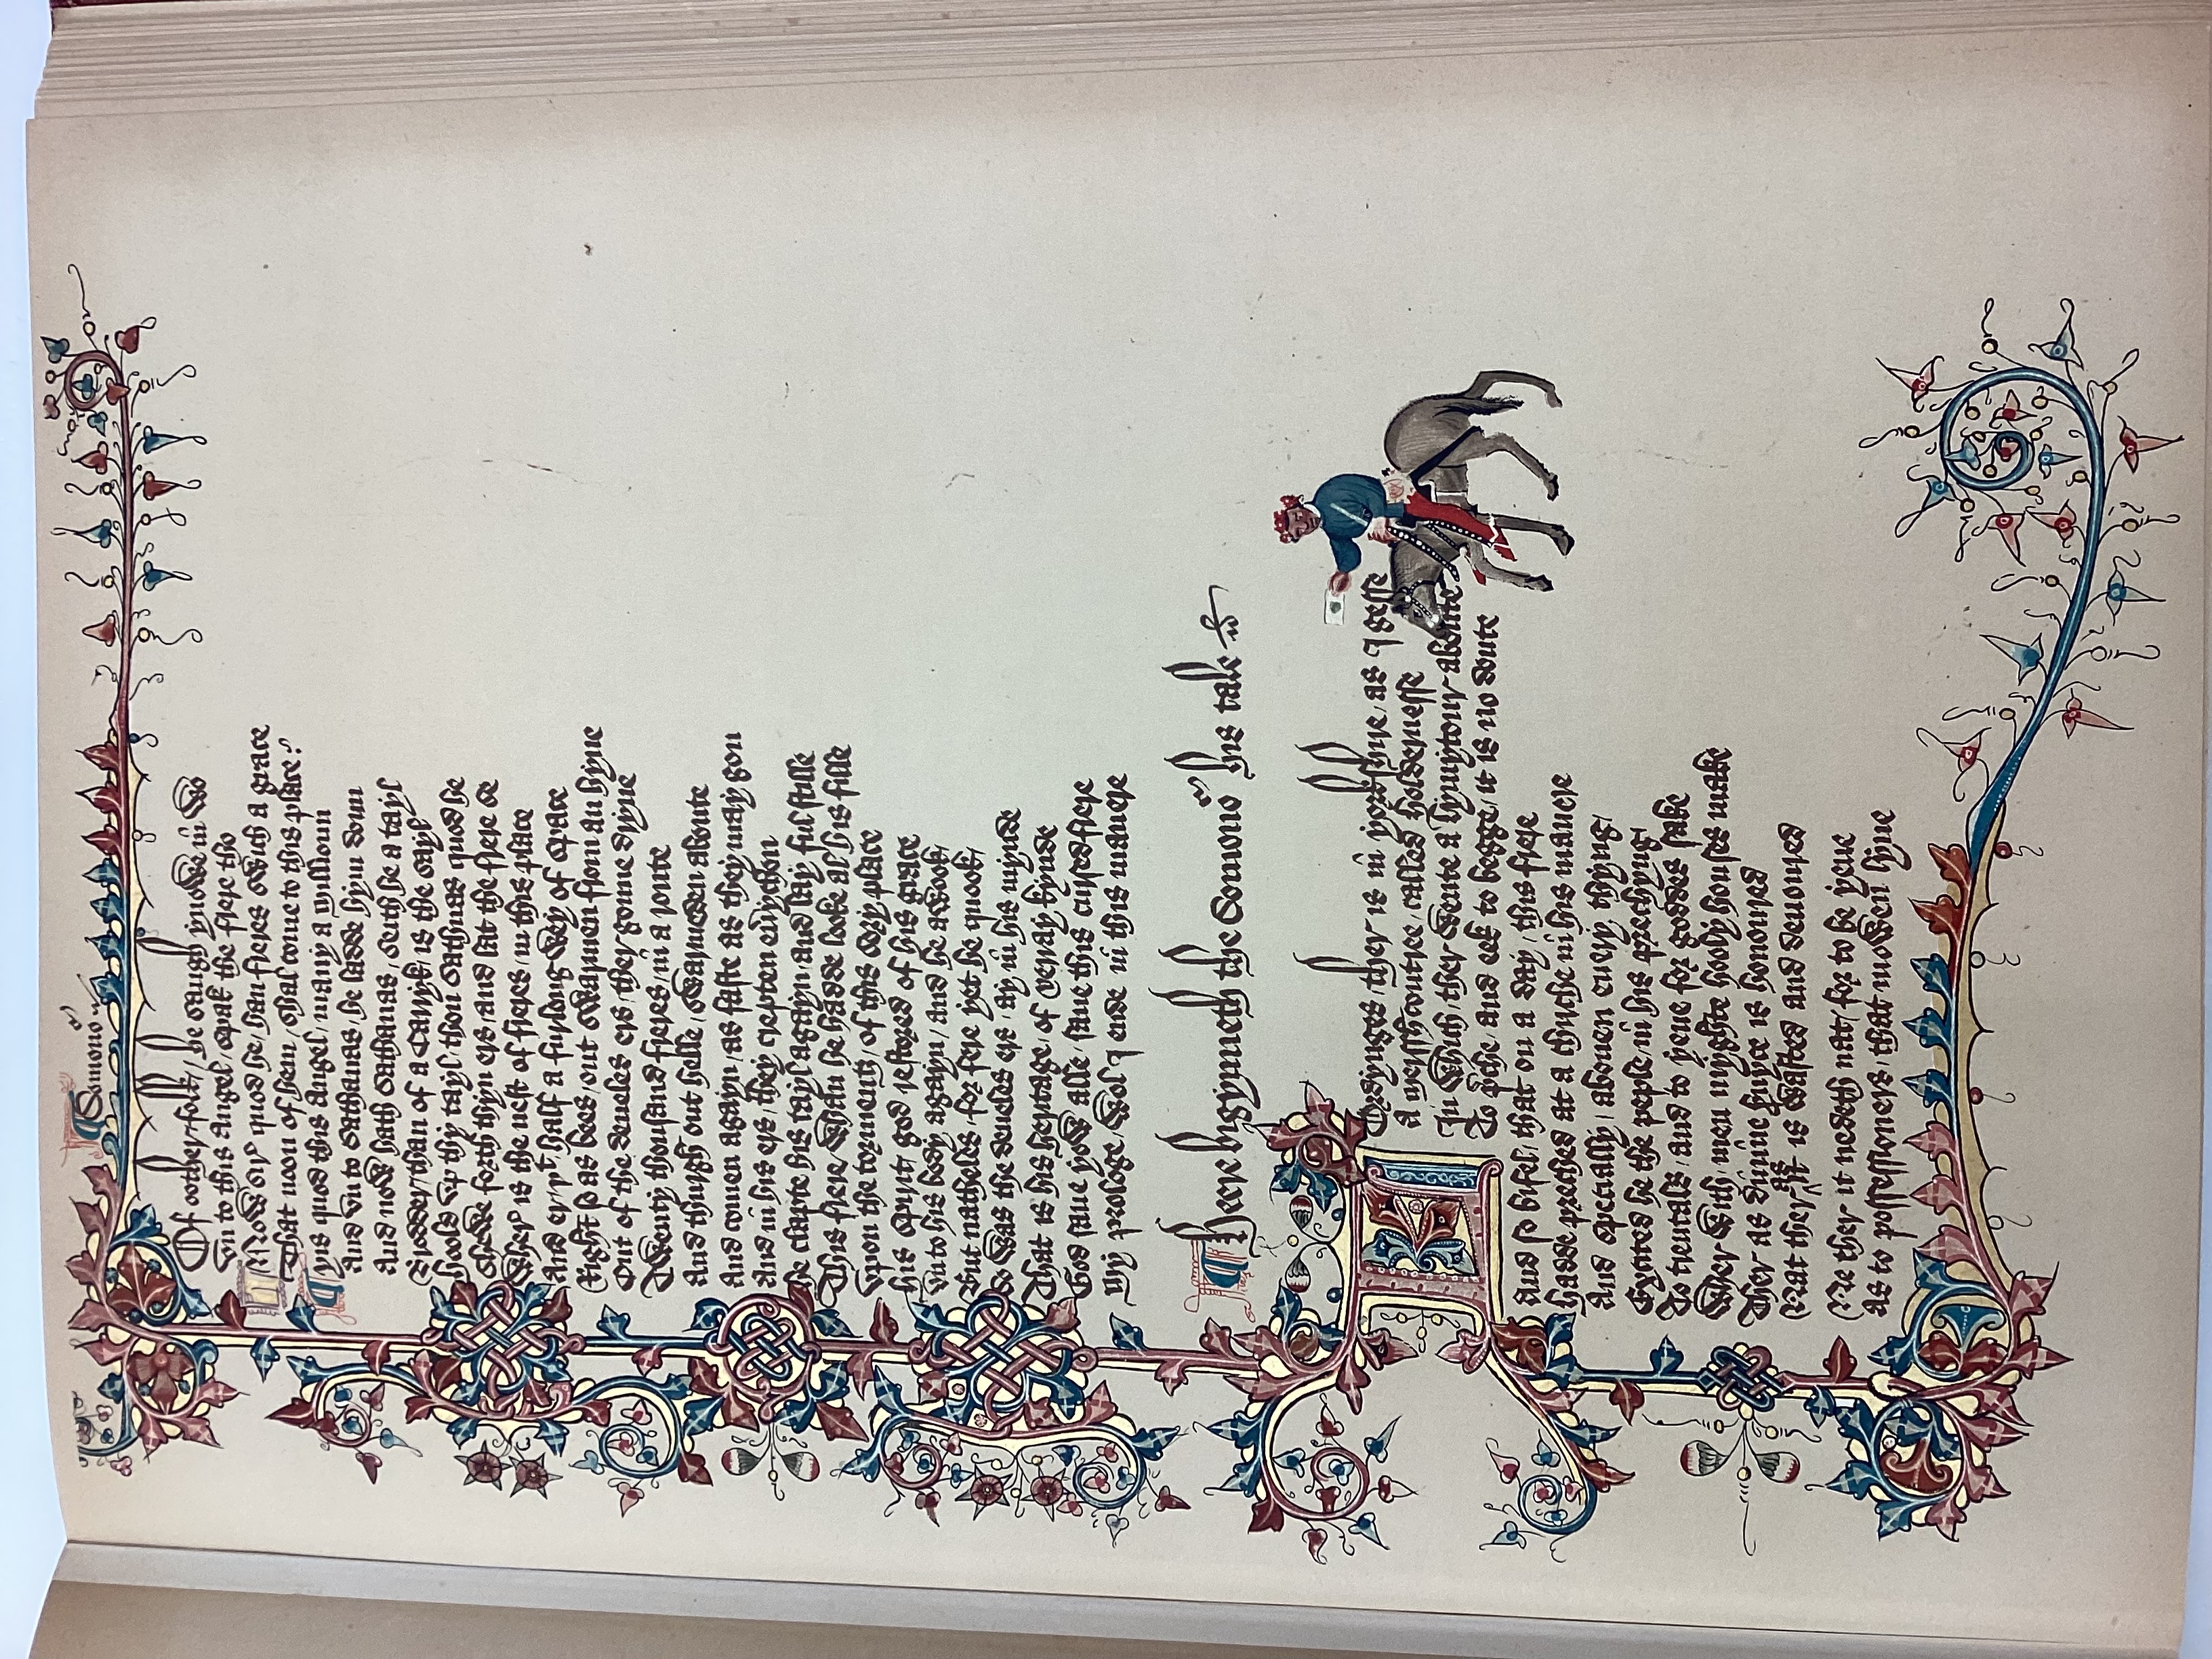 ¶ Somonoᵘʳ
Of oother folk / be ynough ynowe in wo
Vn to this angel / spak the frere tho
Now sire quod he / han freres swich a grace
That noon of hem / shal come to this place
yis quod this angel / many a millioun
And vn to Sathanas / he ladde hym doun
And now hath Sathanas / seith he a tayl
Brodder / than of a Carryk / is the sayl
hoold vp thy tayl / thou Sathanas quod he
Shewe forth thyn ers / and lat the frere se
Wher is the nest of freres / in this place
And er þᵗ half a furlong wey of space
Right so as bees / out swarmen from an hyue
Out of the deueles ers / they gonne dryue
Twenty thousand freres / in a route
And thurgh out helle / swarmeden aboute
And comen agayn / as faste as they may gon
And in his ers / they crepten euerychon
he clapte his tayl agayn / and lay ful stille
This frere / whan he hadde looke al his fille
Vpon the tormentz / of this sory place
his spirit / god restored of his grace
Vn to his body agayn / and he awook
But nathelees / for fere yet he quook
So was the deueles ers / ay in his mynde
That is his heritage / of verray kynde
God saue yow alle / saue this cursed frere
My prologe / wol I ende in this manere
¶ Heere bigynneth the Somonoᵘʳ his tale
Lordynges / ther is in yorkshire / as I gesse
A mersshy contree / called Holdernesse
In which / ther wente a lymytour aboute
To preche / and eek to begge / it is no doute
And so bifel / that on a day / this frere
hadde preched at a chirche in his manere
And specially / abouen euery thyng
Excited he the peple / in his prechyng
To trentals / and to yeue for goddes sake
Wher with men myghte hooly houses make
Ther as diuine seruyce is honoured
Nat ther as it is wasted and deuoured
Ne ther it nedeth nat / for to be yeue
As to possessioners / that mowen lyue